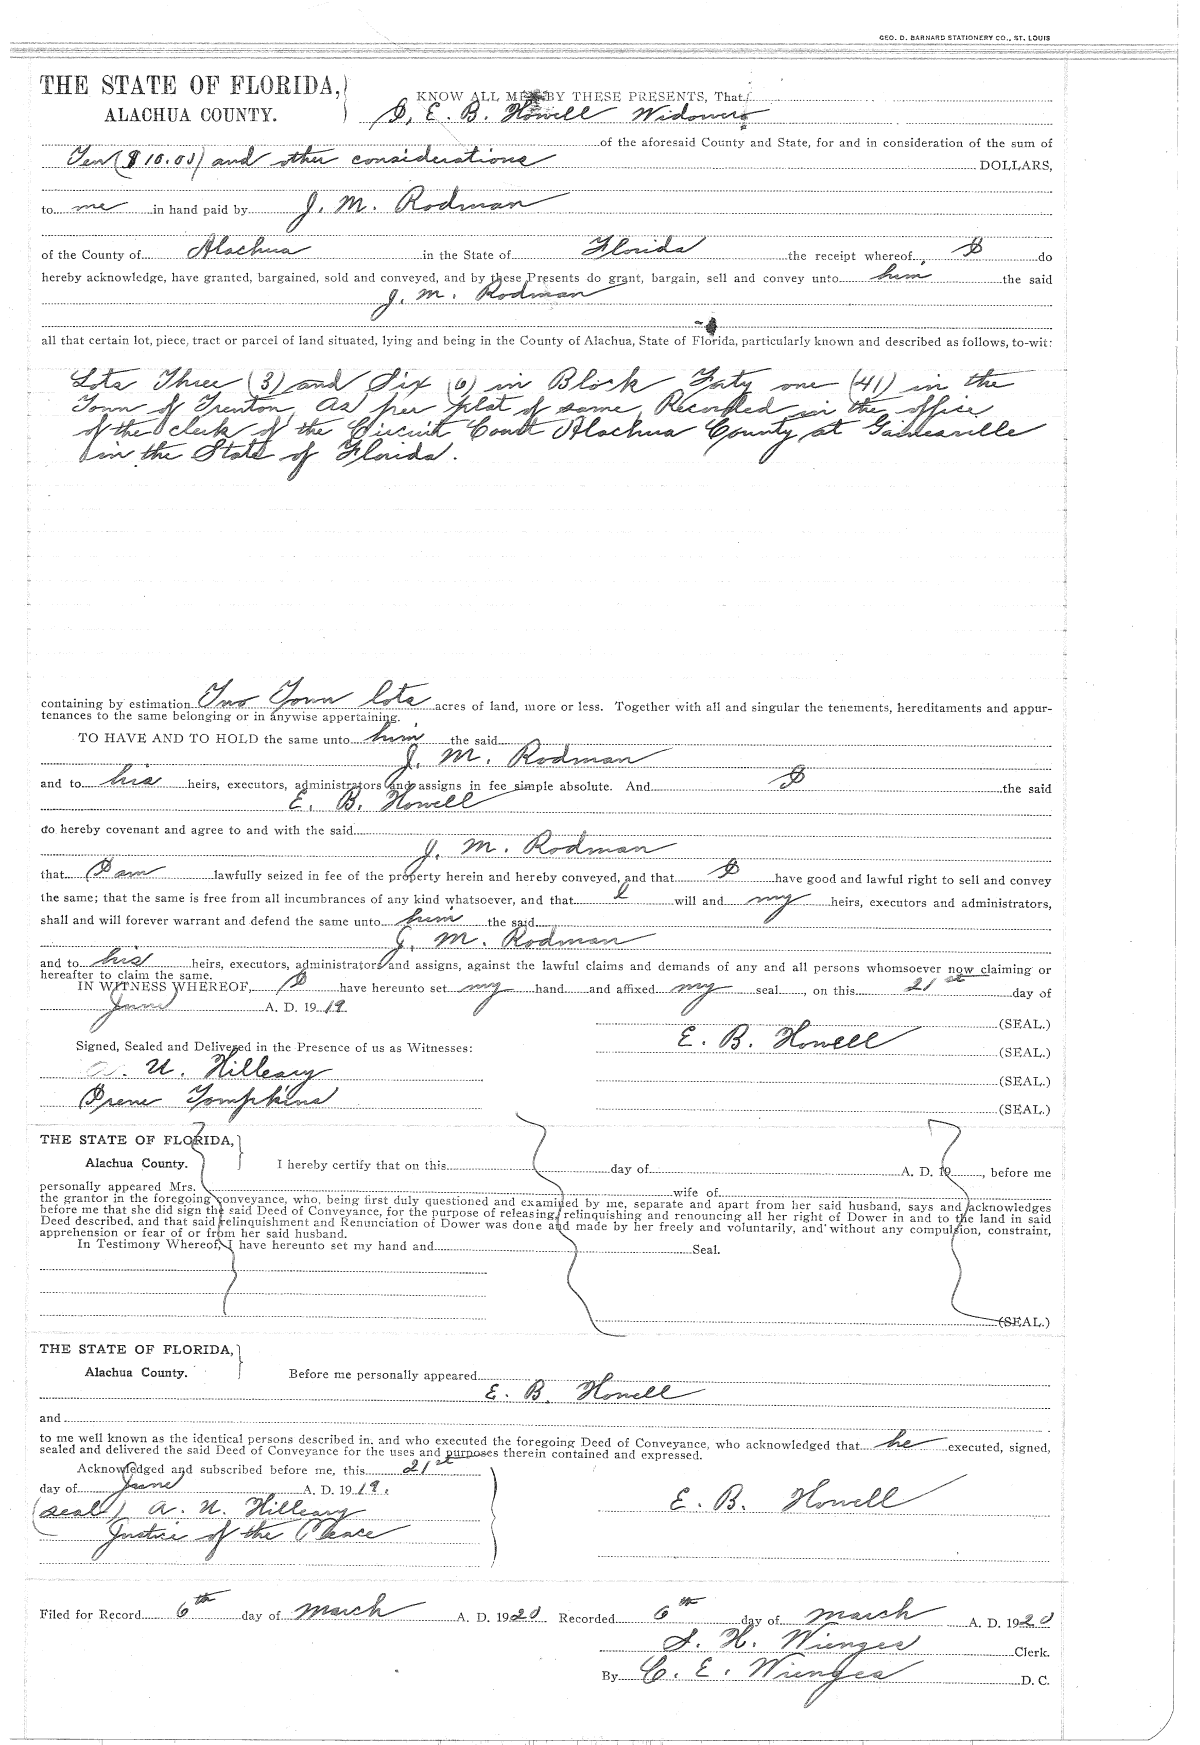 GEO. D. BARNARD STATIONERY CO., ST. LOUIS
THE STATE OF FLORIDA,
ALACHUA COUNTY.
KNOW ALL MEN BY THESE PRESENTS, That
I, E. B. Howell Widower
of the aforesaid County and State, for and in consideration of the sum of
Ten ($10.00) and other considerations DOLLARS,
to me in hand paid by J. M. Rodman
of the County of Alachua in the State of Florida the receipt whereof, I do
hereby acknowledge, have granted, bargained, sold and conveyed, and by these Presents do grant, bargain, sell and convey unto him the said
J. M. Rodman
all that certain lot, piece, tract or parcel of land situated, lying and being in the County of Alachua, State of Florida, particularly known and described as follows, to-wit:
Lots Three (3) and Six (6) in Block Forty one (41) in the
Town of Trenton, As per plat of same, Recorded in the office
of the clerk of the Circuit Court Alachua County at Gainesville
in the State of Florida.
containing by estimation Two Town lots acres of land, more or less. Together with all and singular the tenements, hereditaments and appur-
tenances to the same belonging or in anywise appertaining.
TO HAVE AND TO HOLD the same unto him the said
J. M. Rodman
and to his heirs, executors, administrators and assigns in fee simple absolute. And I the said
E. B. Howell
do hereby covenant and agree to and with the said
J. M. Rodman
that I am lawfully seized in fee of the property herein and hereby conveyed, and that I have good and lawful right to sell and convey
the same; that the same is free from all incumbrances of any kind whatsoever, and that I will and my heirs, executors and administrators,
shall and will forever warrant and defend the same unto him the said
J. M. Rodman
and to his heirs, executors, administrators and assigns, against the lawful claims and demands of any and all persons whomsoever now claiming or
hereafter to claim the same.
IN WITNESS WHEREOF, I have hereunto set my hand and affixed my seal, on this 21st day of
June A. D. 1919
(SEAL.)
E. B. Howell (SEAL.)
Signed, Sealed and Delivered in the Presence of us as Witnesses:
A. N. Hilleary (SEAL.)
Irene Tompkins (SEAL.)
THE STATE OF FLORIDA,
Alachua County. I hereby certify that on this day of A. D. 19 , before me
personally appeared Mrs. wife of
the grantor in the foregoing conveyance, who, being first duly questioned and examined by me, separate and apart from her said husband, says and acknowledges
before me that she did sign the said Deed of Conveyance, for the purpose of releasing, relinquishing and renouncing all her right of Dower in and to the land in said
Deed described, and that said relinquishment and Renunciation of Dower was done and made by her freely and voluntarily, and without any compulsion, constraint,
apprehension or fear of or from her said husband.
In Testimony Whereof, I have hereunto set my hand and Seal.
(SEAL.)
THE STATE OF FLORIDA,
Alachua County. Before me personally appeared
E. B. Howell
and
to me well known as the identical persons described in, and who executed the foregoing Deed of Conveyance, who acknowledged that he executed, signed,
sealed and delivered the said Deed of Conveyance for the uses and purposes therein contained and expressed.
Acknowledged and subscribed before me, this 21st
day of June A. D. 1919.
(seal) A. N. Hilleary E. B. Howell
Justice of the Peace
Filed for Record 6th day of March A. D. 1920 Recorded 6th day of March A. D. 1920
S. H. Wienges Clerk.
By C. E. Wienges D. C.